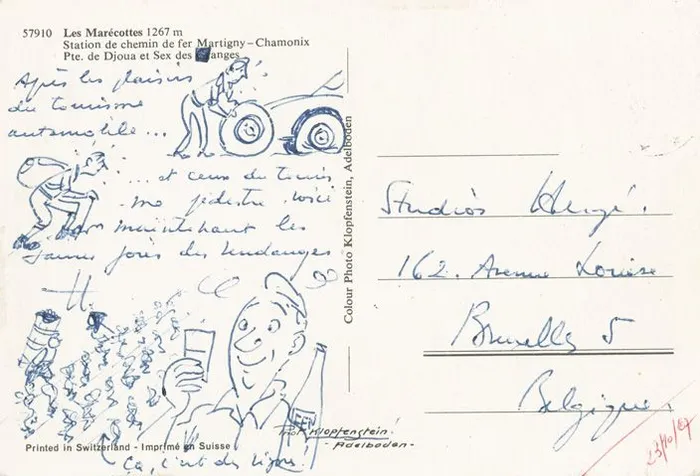 57910 Les Marécottes 1267 m
Station de chemin de fer Martigny–Chamonix
Pte. de Djoua et Sex des Granges
Après les plaisirs
du tourisme
automobile...
...et ceux du touris
me pédestre, voici
maintenant les
saines joies des vendanges
H.
Ça, c'est des
Printed in Switzerland - Imprimé en Suisse
Colour Photo Klopfenstein, Adelboden
Klopfenstein!
-Adelboden-
Studios Hergé.
162. Avenue Louise
Bruxelles 5
Belgique